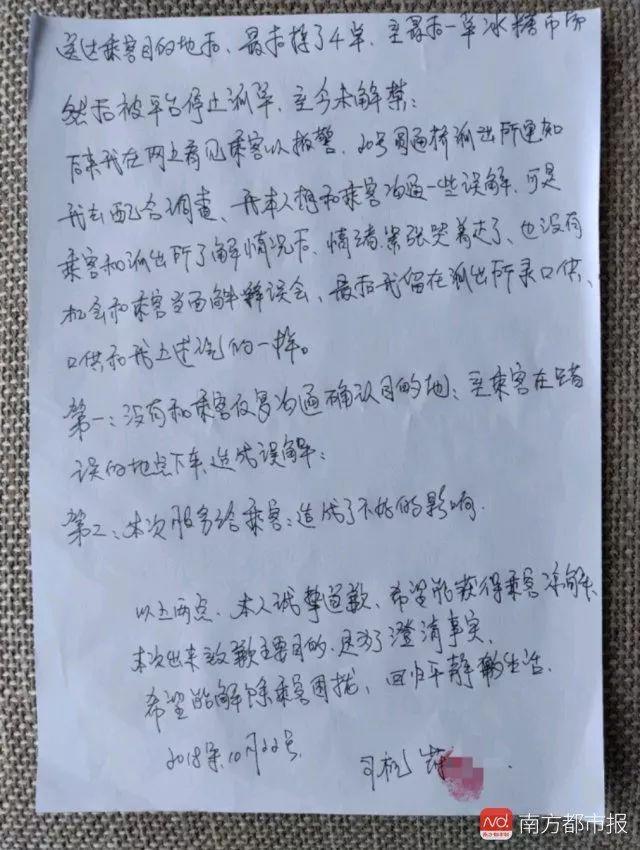 送达乘客目的地后、最后接了4单、至最后一单冰糖市场
然后被平台停止派单、至今未解禁；
后来我在网上看见乘客以报警、20号圆通桥派出所通知
我去配合调查、我本人想和乘客沟通一些误解、可是
乘客和派出所了解情况后、情绪紧张哭着走了、也没有
机会和乘客当面解释误会、最后我留在派出所录口供、
口供和我上述说的一样。
第一：没有和乘客反复沟通确认目的地；至乘客在错
误的地点下车、造成误解；
第二、本次服务给乘客；造成了不好的影响.
以上两点、本人诚挚道歉、希望能获得乘客谅解、
本次出来致歉主要目的、是为了澄清事实、
希望能解除乘客困扰、回归平静的生活.
2018年10月22号.
司机
Nd.
南方都市报
南方都市报